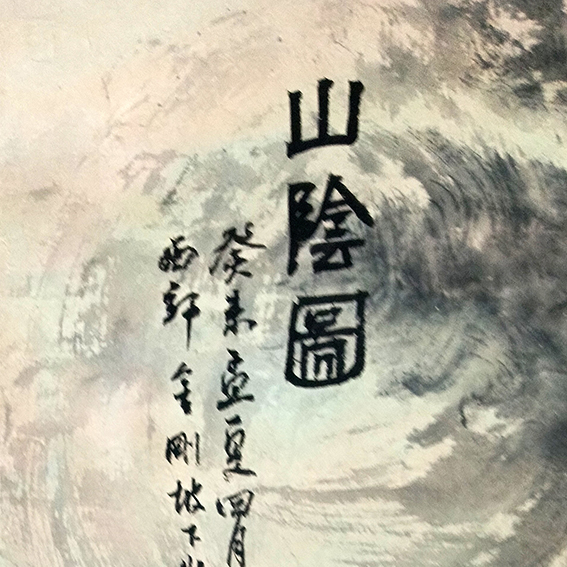 山陰圖
癸未孟夏四月
西郊金剛坡下